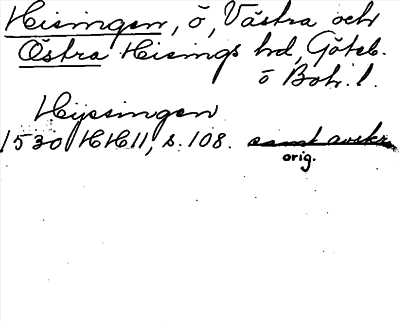 Hisingen, ö, Västra och
Östra Hisings hd, Göteb.
o Boh. l.
Hijssingen
1530 HH 11, s. 108. samt avskr.
orig.